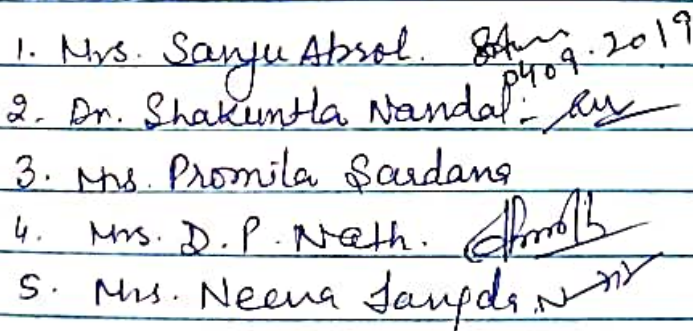 1. Mrs. Sanju Absol. 0409.2019
2. Dr. Shakuntla Nandal -
3. Mrs. Promila Sardana
4. Mrs. D.P. Nath.
5. Mrs. Neena Jangda